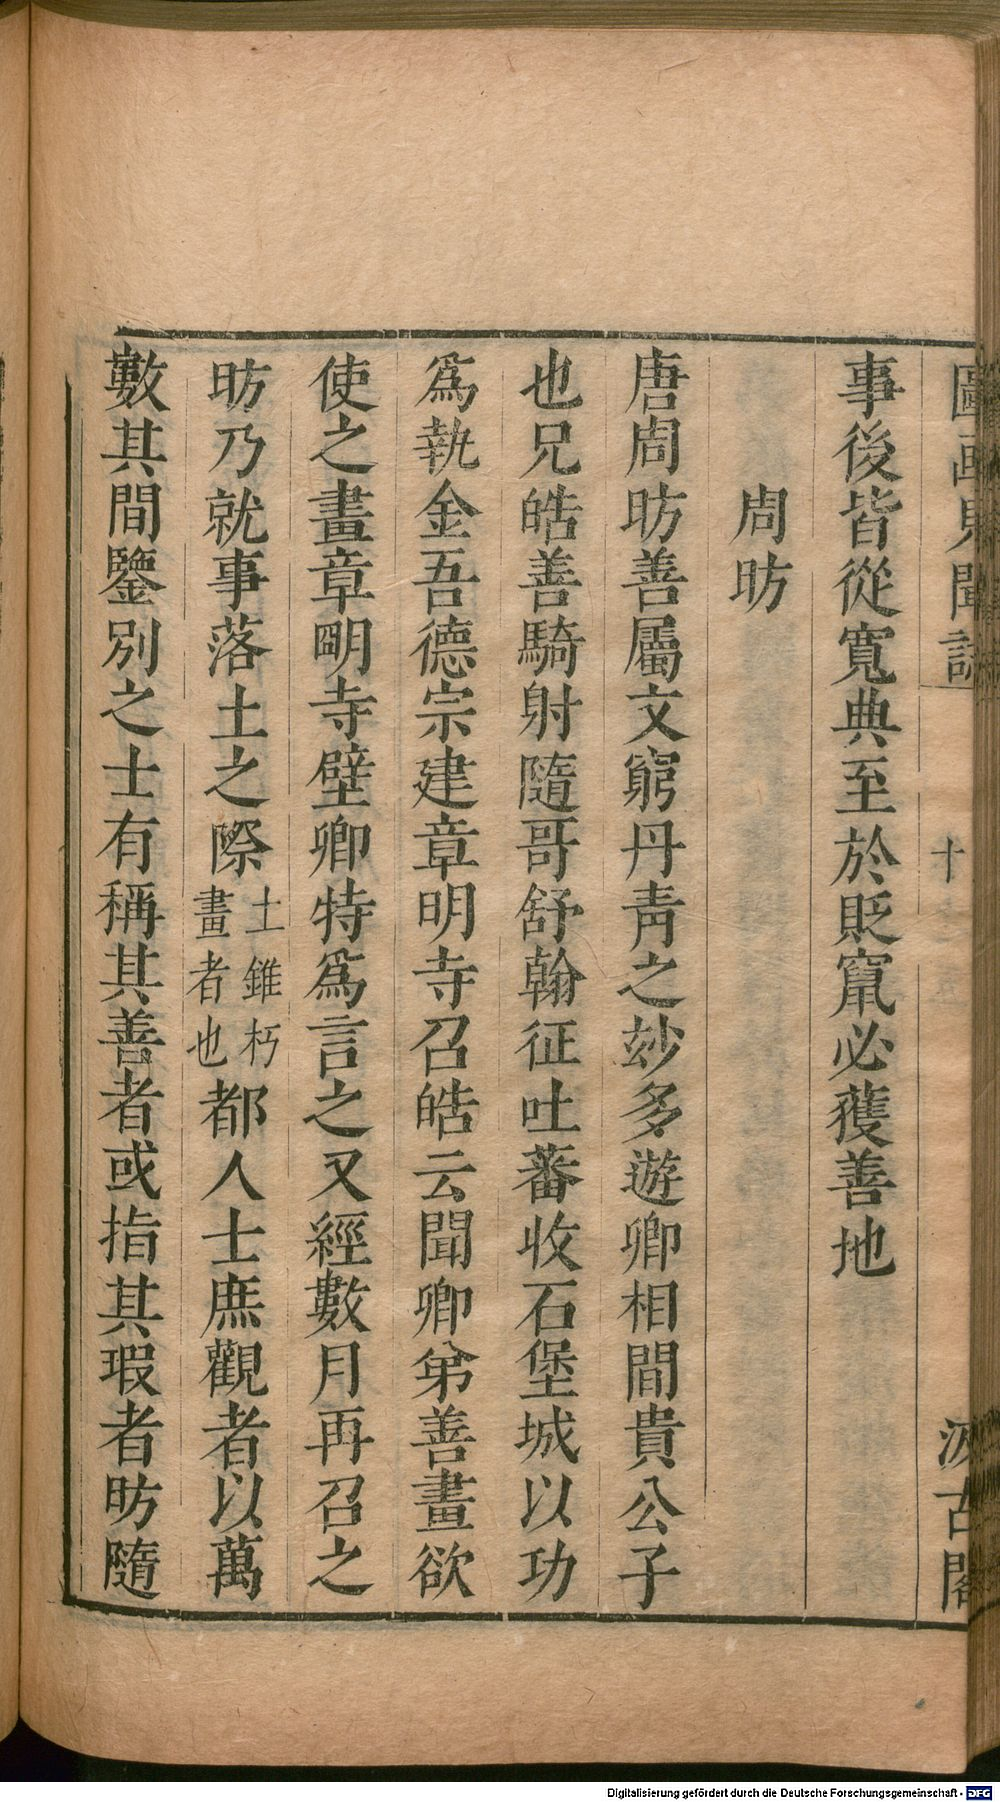 圖画見聞誌
十
汲古閣
事後皆從寬典至於貶竄必獲善地
周昉
唐周昉善屬文窮丹靑之玅多遊卿相間貴公子
也兄皓善騎射隨哥舒翰征吐蕃收石堡城以功
爲執金吾德宗建章明寺召皓云聞卿弟善畫欲
使之畫章明寺壁卿特爲言之又經數月再召之
昉乃就事落土之際土錐朽畫者也都人士庶觀者以萬
數其間鑒別之士有稱其善者或指其瑕者昉隨
Digitalisierung gefördert durch die Deutsche Forschungsgemeinschaft - DFG